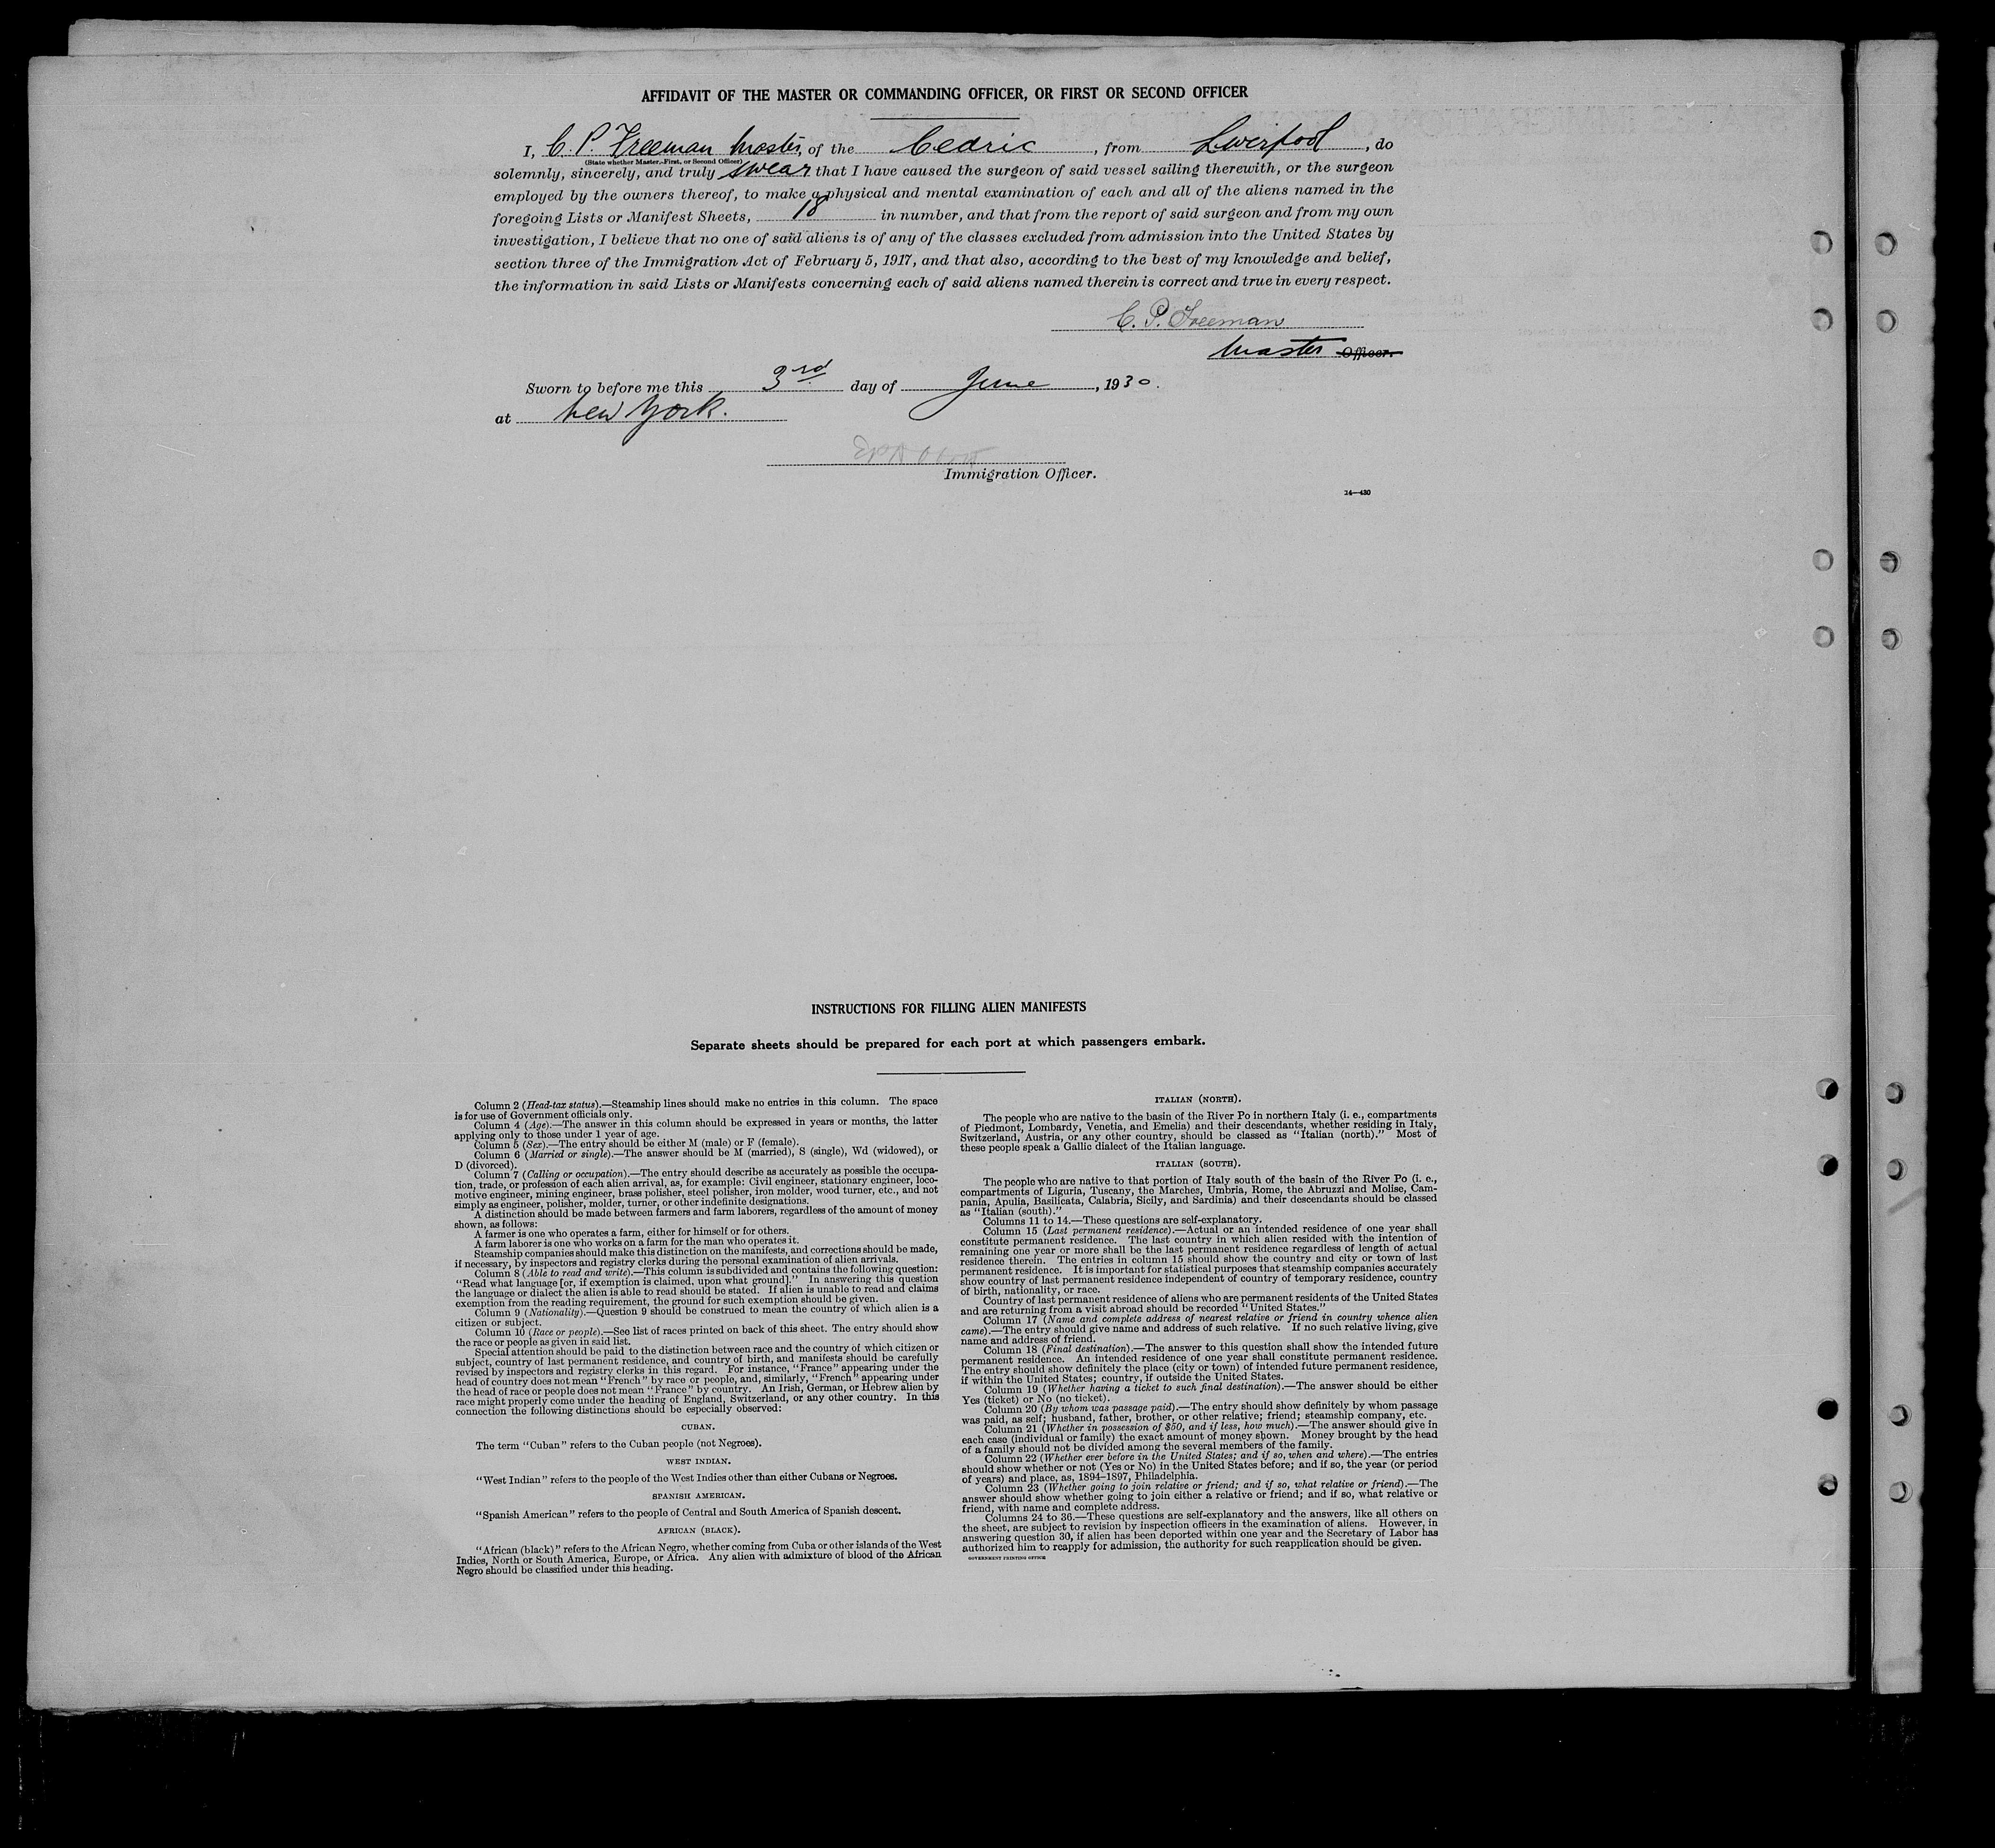 AFFIDAVIT OF THE MASTER OR COMMANDING OFFICER, OR FIRST OR SECOND OFFICER
I, C. P. Freeman Master, of the Cedric, from Liverpool, do
(State whether Master, First, or Second Officer)
solemnly, sincerely, and truly swear that I have caused the surgeon of said vessel sailing therewith, or the surgeon
employed by the owners thereof, to make a physical and mental examination of each and all of the aliens named in the
foregoing Lists or Manifest Sheets, 18 in number, and that from the report of said surgeon and from my own
investigation, I believe that no one of said aliens is of any of the classes excluded from admission into the United States by
section three of the Immigration Act of February 5, 1917, and that also, according to the best of my knowledge and belief,
the information in said Lists or Manifests concerning each of said aliens named therein is correct and true in every respect.
C. P. Freeman
Master Officer.
Sworn to before me this 3rd day of June, 1930.
at New York.
Immigration Officer.
14—430
INSTRUCTIONS FOR FILLING ALIEN MANIFESTS
Separate sheets should be prepared for each port at which passengers embark.
Column 2 (Head-tax status).—Steamship lines should make no entries in this column. The space
is for use of Government officials only.
Column 4 (Age).—The answer in this column should be expressed in years or months, the latter
applying only to those under 1 year of age.
Column 5 (Sex).—The entry should be either M (male) or F (female).
Column 6 (Married or single).—The answer should be M (married), S (single), Wd (widowed), or
D (divorced).
Column 7 (Calling or occupation).—The entry should describe as accurately as possible the occupa-
tion, trade, or profession of each alien arrival, as, for example: Civil engineer, stationary engineer, loco-
motive engineer, mining engineer, brass polisher, steel polisher, iron molder, wood turner, etc., and not
simply as engineer, polisher, molder, turner, or other indefinite designations.
A distinction should be made between farmers and farm laborers, regardless of the amount of money
shown, as follows:
A farmer is one who operates a farm, either for himself or for others.
A farm laborer is one who works on a farm for the man who operates it.
Steamship companies should make this distinction on the manifests, and corrections should be made,
if necessary, by inspectors and registry clerks during the personal examination of alien arrivals.
Column 8 (Able to read and write).—This column is subdivided and contains the following question:
“Read what language [or, if exemption is claimed, upon what ground].” In answering this question
the language or dialect the alien is able to read should be stated. If alien is unable to read and claims
exemption from the reading requirement, the ground for such exemption should be given.
Column 9 (Nationality).—Question 9 should be construed to mean the country of which alien is a
citizen or subject.
Column 10 (Race or people).—See list of races printed on back of this sheet. The entry should show
the race or people as given in said list.
Special attention should be paid to the distinction between race and the country of which citizen or
subject, country of last permanent residence, and country of birth, and manifests should be carefully
revised by inspectors and registry clerks in this regard. For instance, “France” appearing under the
head of country does not mean “French” by race or people, and, similarly, “French” appearing under
the head of race or people does not mean “France” by country. An Irish, German, or Hebrew alien by
race might properly come under the heading of England, Switzerland, or any other country. In this
connection the following distinctions should be especially observed:
CUBAN.
The term “Cuban” refers to the Cuban people (not Negroes).
WEST INDIAN.
“West Indian” refers to the people of the West Indies other than either Cubans or Negroes.
SPANISH AMERICAN.
“Spanish American” refers to the people of Central and South America of Spanish descent.
AFRICAN (BLACK).
“African (black)” refers to the African Negro, whether coming from Cuba or other islands of the West
Indies, North or South America, Europe, or Africa. Any alien with admixture of blood of the African
Negro should be classified under this heading.
ITALIAN (NORTH).
The people who are native to the basin of the River Po in northern Italy (i. e., compartments
of Piedmont, Lombardy, Venetia, and Emelia) and their descendants, whether residing in Italy,
Switzerland, Austria, or any other country, should be classed as “Italian (north).” Most of
these people speak a Gallic dialect of the Italian language.
ITALIAN (SOUTH).
The people who are native to that portion of Italy south of the basin of the River Po (i. e.,
compartments of Liguria, Tuscany, the Marches, Umbria, Rome, the Abruzzi and Molise, Cam-
pania, Apulia, Basilicata, Calabria, Sicily, and Sardinia) and their descendants should be classed
as “Italian (south).”
Columns 11 to 14.—These questions are self-explanatory.
Column 15 (Last permanent residence).—Actual or an intended residence of one year shall
constitute permanent residence. The last country in which alien resided with the intention of
remaining one year or more shall be the last permanent residence regardless of length of actual
residence therein. The entries in column 15 should show the country and city or town of last
permanent residence. It is important for statistical purposes that steamship companies accurately
show country of last permanent residence independent of country of temporary residence, country
of birth, nationality, or race.
Country of last permanent residence of aliens who are permanent residents of the United States
and are returning from a visit abroad should be recorded “United States.”
Column 17 (Name and complete address of nearest relative or friend in country whence alien
came).—The entry should give name and address of such relative. If no such relative living, give
name and address of friend.
Column 18 (Final destination).—The answer to this question shall show the intended future
permanent residence. An intended residence of one year shall constitute permanent residence.
The entry should show definitely the place (city or town) of intended future permanent residence,
if within the United States; country, if outside the United States.
Column 19 (Whether having a ticket to such final destination).—The answer should be either
Yes (ticket) or No (no ticket).
Column 20 (By whom was passage paid).—The entry should show definitely by whom passage
was paid, as self; husband, father, brother, or other relative; friend; steamship company, etc.
Column 21 (Whether in possession of $50, and if less, how much).—The answer should give in
each case (individual or family) the exact amount of money shown. Money brought by the head
of a family should not be divided among the several members of the family.
Column 22 (Whether ever before in the United States; and if so, when and where).—The entries
should show whether or not (Yes or No) in the United States before; and if so, the year (or period
of years) and place, as, 1894–1897, Philadelphia.
Column 23 (Whether going to join relative or friend; and if so, what relative or friend).—The
answer should show whether going to join either a relative or friend; and if so, what relative or
friend, with name and complete address.
Columns 24 to 36.—These questions are self-explanatory and the answers, like all others on
the sheet, are subject to revision by inspection officers in the examination of aliens. However, in
answering question 30, if alien has been deported within one year and the Secretary of Labor has
authorized him to reapply for admission, the authority for such reapplication should be given.
GOVERNMENT PRINTING OFFICE